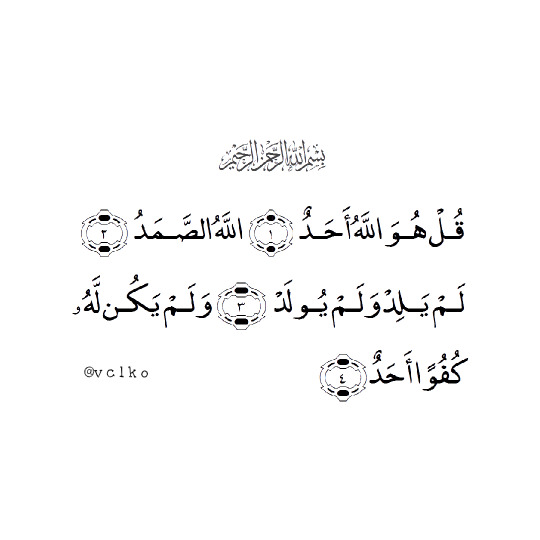 بِسْمِ اللَّهِ الرَّحْمَٰنِ الرَّحِيمِ
قُلْ هُوَ اللَّهُ أَحَدٌ ١ اللَّهُ الصَّمَدُ ٢
لَمْ يَلِدْ وَلَمْ يُولَدْ ٣ وَلَمْ يَكُن لَّهُۥ
كُفُوًا أَحَدٌ ٤
@vclko